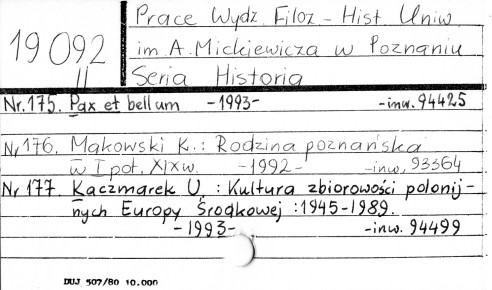 Prace Wydz. Filoz.-Hist. Uniw.
19092
im. A. Mickiewicza w Poznaniu
II
Seria Historia
Nr. 175. Pax et bellum -1993- -inw. 94425
Nr 176. Mąkowski K.: Rodzina poznańska
w I poł. XIX w. -1992- -inw. 93364
Nr 177. Kaczmarek U. : Kultura zbiorowości polonij-
nych Europy Środkowej : 1945-1989.
-1993- -inw. 94499
DUJ 507/80 10.000